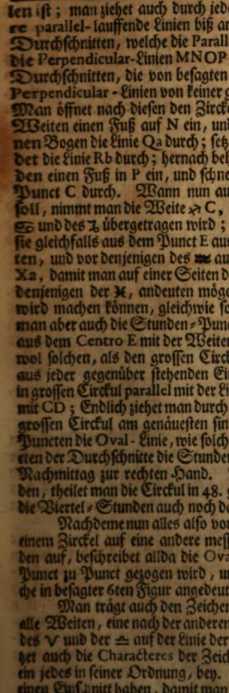 len ist; man ziehet auch durch jed
re parallel-lauffende Linien biß an
Durchschnitten, welche die Parall
die Perpendicular-Linien MNOP
Durchschnitten, die von besagten
Perpendicular-Linien von keiner g
Man öffnet nach diesen den Zircke
Weiten einen Fuß auf N ein, und
nen Bogen die Linie Qa durch; setz
det die Linie Rb durch; hernach beh
den einen Fuß in P ein, und schne
Punct C durch. Wann nun au
soll, nimmt man die Weite ♐ C,
♋ und des ♑ übergetragen wird;
sie gleichfalls aus dem Punct E aus
ten, und vor denjenigen des ♒ au
Xa, damit man auf einer Seiten d
denjenigen der ♓, andeuten möge
wird machen können, gleichwie so
man aber auch die Stunden-Punc
aus dem Centro E mit der Weiten
wol solchen, als den grossen Circk
aus jeder gegenüber stehenden Ein
in grossen Circkul parallel mit der Li
mit CD; Endlich ziehet man durch
grossen Circkul am genäuesten sin
Puncten die Oval-Linie, wie solch
eten der Durchschnitte die Stunden
Nachmittag zur rechten-Hand.
den, theilet man die Circkul in 48. g
die Viertel-Stunden auch noch da
Nachdeme nun alles also vor
einem Zirckel auf eine andere mess
den auf, beschreibet allda die Ova
Punct zu Punct gezogen wird, u
che in besagter 6ten Figur angedeut
Man trägt auch den Zeichen
alle Weiten, eine nach der anderen
des ♈ und der ♎ auf der Linie der
het auch die Characteres der Zeich
ein jedes in seiner Ordnung, bey.